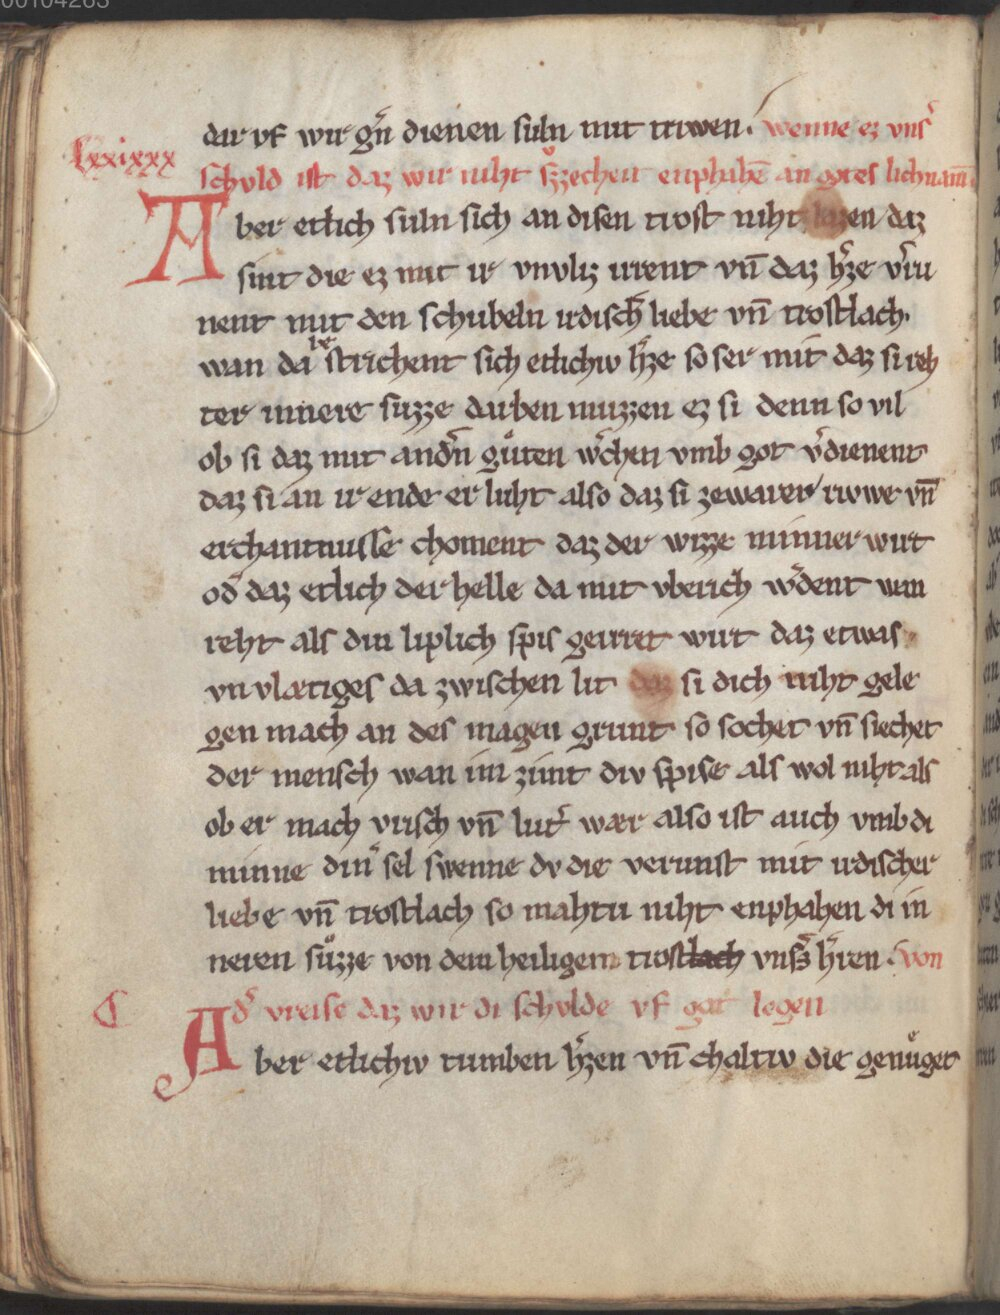 00104263
dar vf wir gn̄ dienen suln mit triwen. wenne ez vnẛ
Lxxixxx schvld ist daz wir niht sv̊zzecheit enphahē an gotes lichnam̄
Aber etlich suln sich an disen trost niht lazen daz
sint die ez mit ir vnvliz irrent vn̄ daz h'ze v'ru
nent mit den schubeln irdisch' liebe vn̄ trostlach.
wan da be strichent sich etlichiv h'ze so ser mit daz si reh
ter innere suzze darben muzzen ez si denn so vil
ob si daz mit and'n gůten w'chen vmb got v'dienent
daz si an ir ende er luht also daz si zewarer riwe vn̄
erchantnusse choment daz der wizze minner wirt
od' daz etlich der helle da mit vberich w'dent wan
reht als diu liplich spis geirret wirt daz etwas
vnvlætiges da zwischen lit daz si dich niht gele
gen mach an des magen grunt so sochet vn̄ siechet
der mensch wan im zimt div spise als wol niht als
ob er mach vrisch vn̄ lut' wær also ist auch vmb di
minne din' sel swenne dv die verunst mit irdischer
liebe vn̄ trostlach so mahtu niht enphahen di in
neren sůzze von dem heiligem trostlach vnss' h'ren von
C d' vreise daz wir di schvlde vf got legen
Aber etlichiv tumben h'zen vn̄ chaltiv die genůget